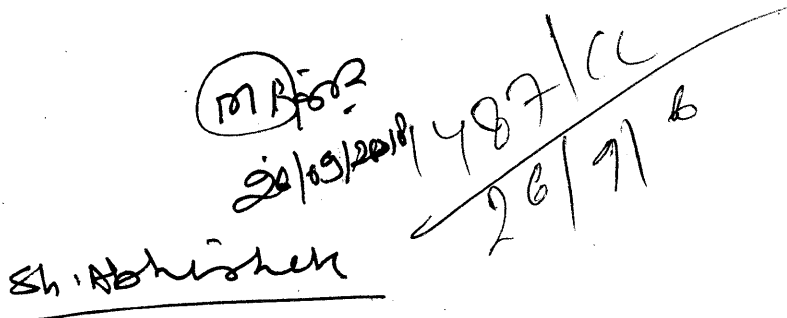 26/09/2018
487/CC
26/9/18
Sh. Abhishek